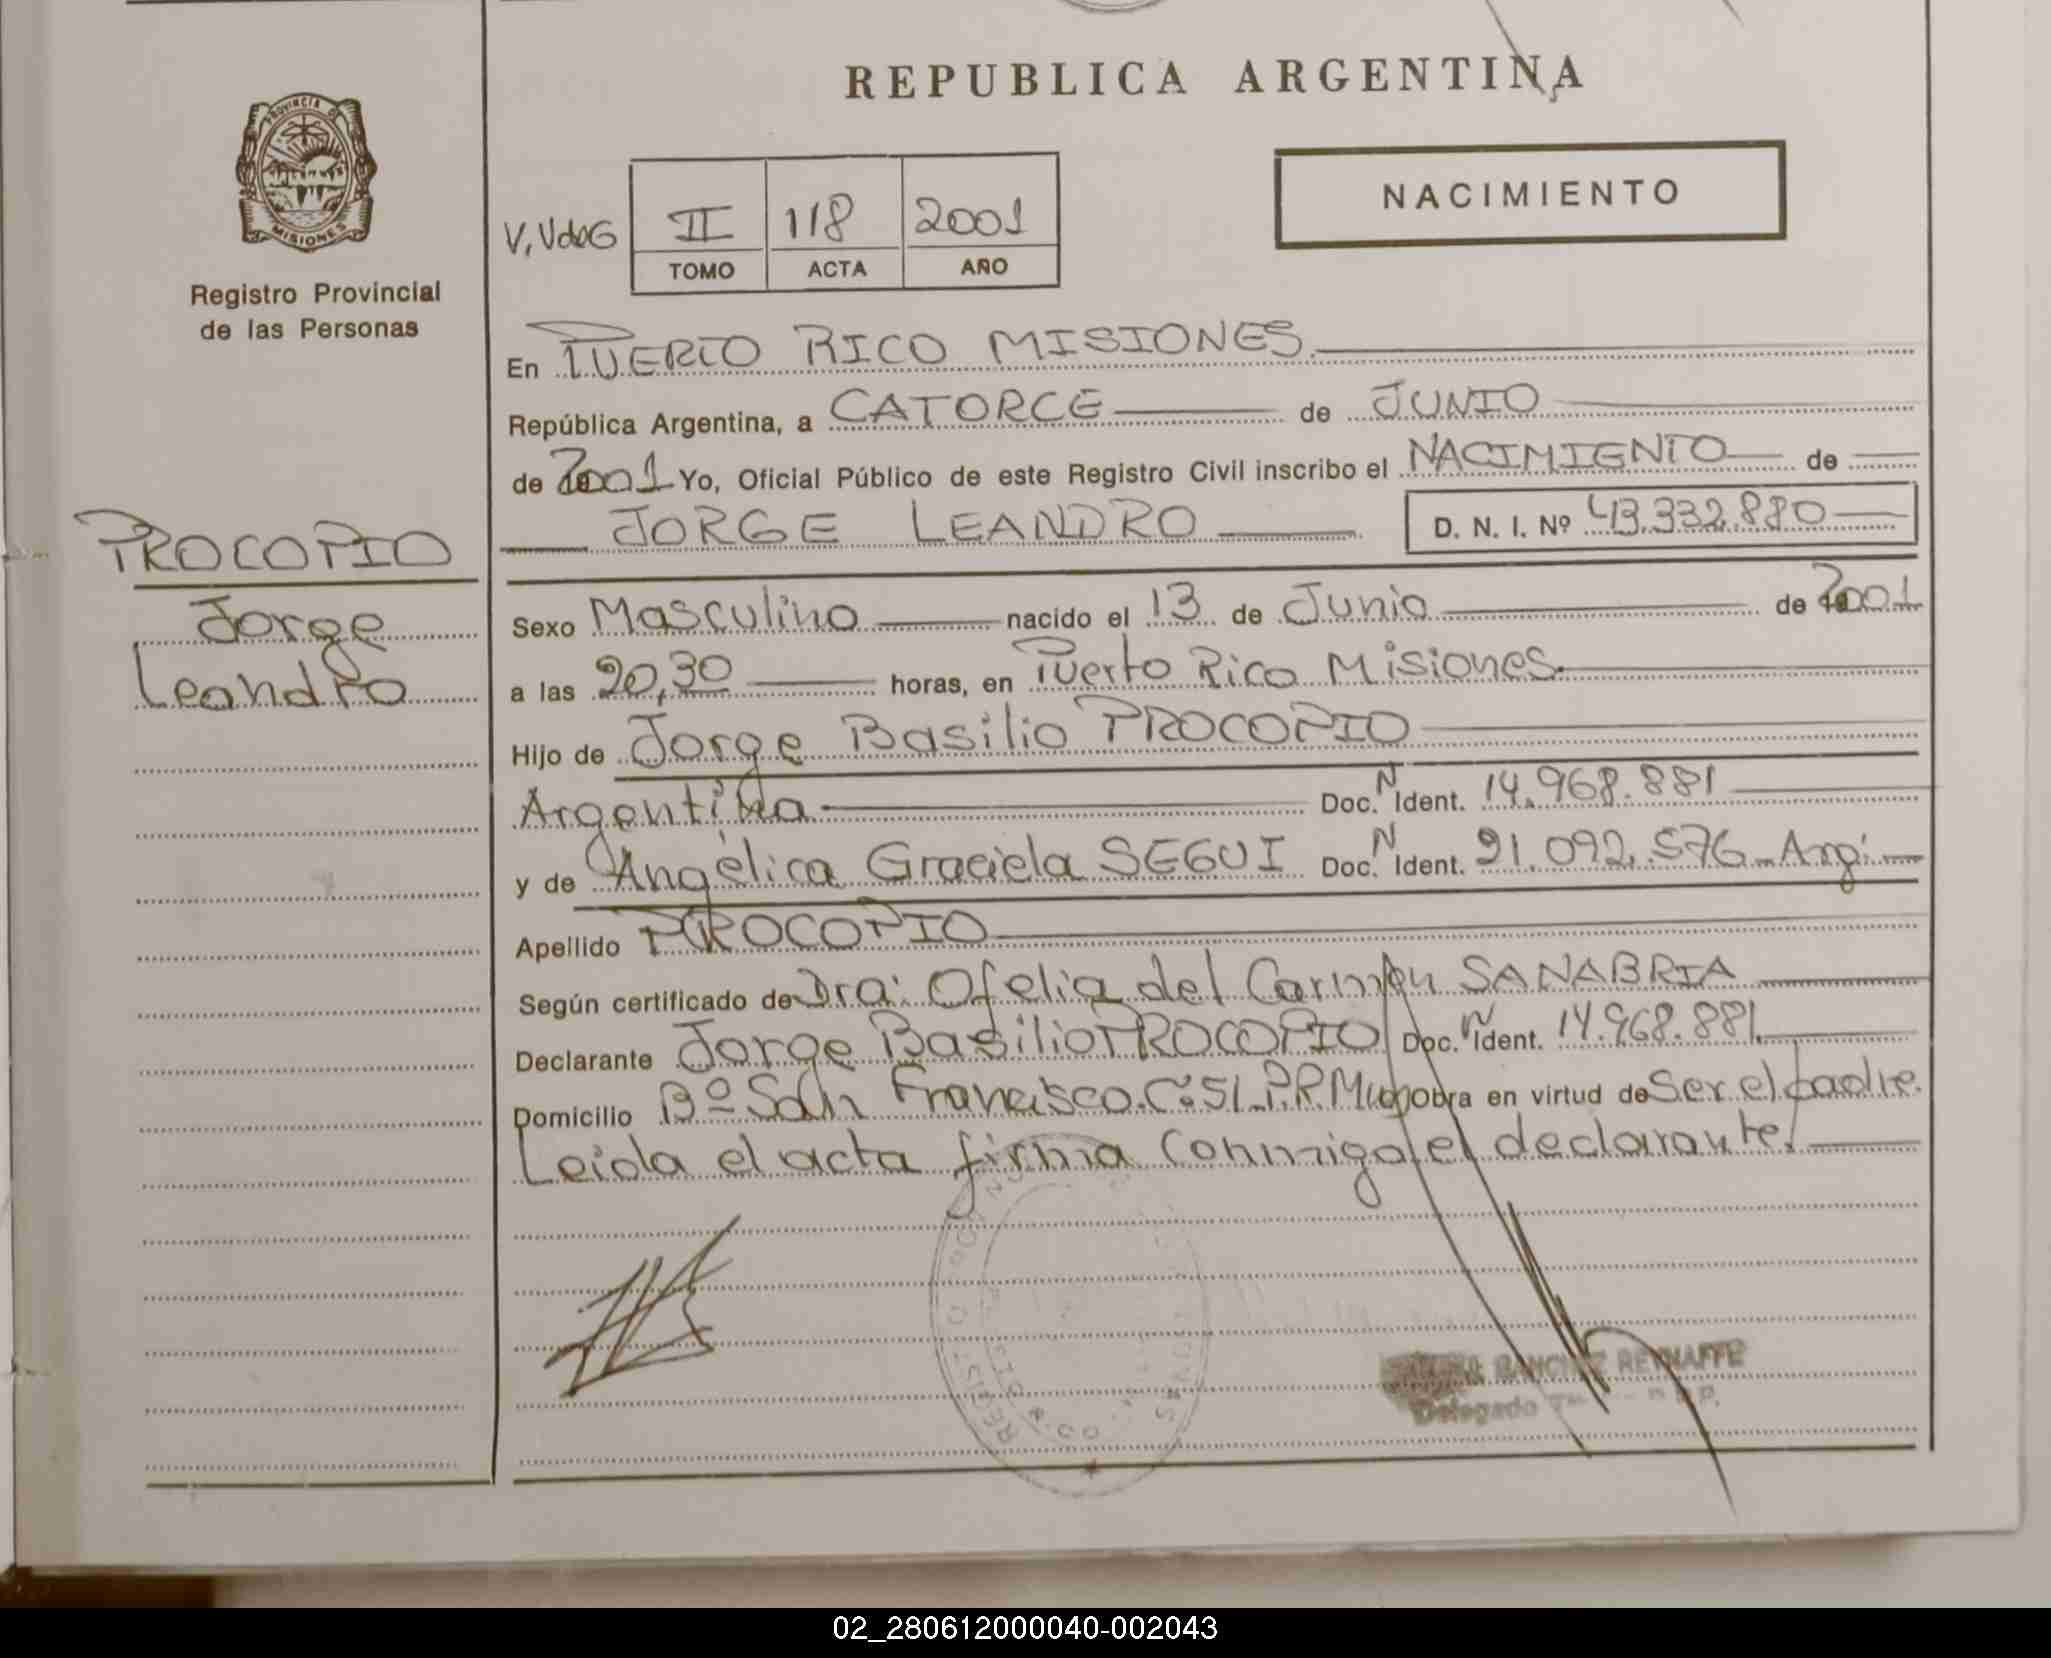 REPUBLICA ARGENTINA
PROVINCIA DE
MISIONES
Registro Provincial
de las Personas
NACIMIENTO
V, VdeG II 118 2001
TOMO ACTA AÑO
En PUERTO RICO MISIONES.
República Argentina, a CATORCE de JUNIO
de 2001 Yo, Oficial Público de este Registro Civil inscribo el NACIMIENTO de
JORGE LEANDRO D. N. I. Nº 43.332.880
PROCOPIO
Jorge
Leandro
Sexo Masculino nacido el 13 de Junio de 2001
a las 20,30 horas, en Puerto Rico Misiones.
Hijo de Jorge Basilio PROCOPIO
Argentina Doc. N Ident. 14.968.881
y de Angélica Graciela SEGUI Doc. N Ident. 21.092.576 Arg.
Apellido PROCOPIO
Según certificado de Dra. Ofelia del Carmen SANABRIA
Declarante Jorge Basilio PROCOPIO Doc. N Ident. 14.968.881
Domicilio Bº San Francisco. C. 51. P.R. Mnes obra en virtud de Ser el padre.
Leida el acta firma conmigo el declarante.
SANCHEZ REYNAFFE
Delegado
02_280612000040-002043